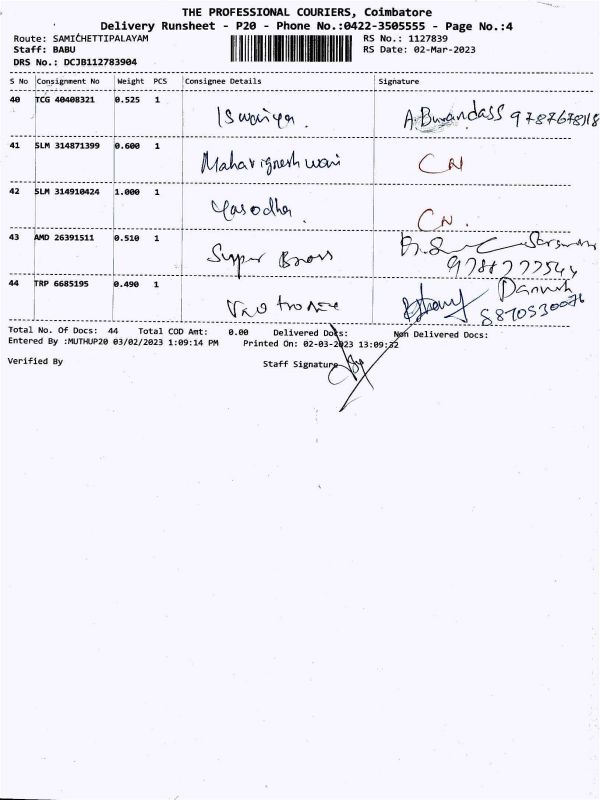 THE PROFESSIONAL COURIERS, Coimbatore
Delivery Runsheet - P20 - Phone No.:0422-3505555 - Page No.:4
Route: SAMICHETTIPALAYAM RS No.: 1127839
Staff: BABU RS Date: 02-Mar-2023
DRS No.: DCJB112783904
S No Consignment No Weight PCS Consignee Details Signature
40 TCG 40408321 0.525 1 Iswariya.
41 SLM 314871399 0.600 1 Mahavigneshwari CN
42 SLM 314910424 1.000 1 Yasodha. CN.
43 AMD 26391511 0.510 1 Supper Bross
44 TRP 6685195 0.490 1
Total No. Of Docs: 44 Total COD Amt: 0.00 Delivered Docs: Non Delivered Docs:
Entered By :MUTHUP20 03/02/2023 1:09:14 PM Printed On: 02-03-2023 13:09:32
Verified By Staff Signature